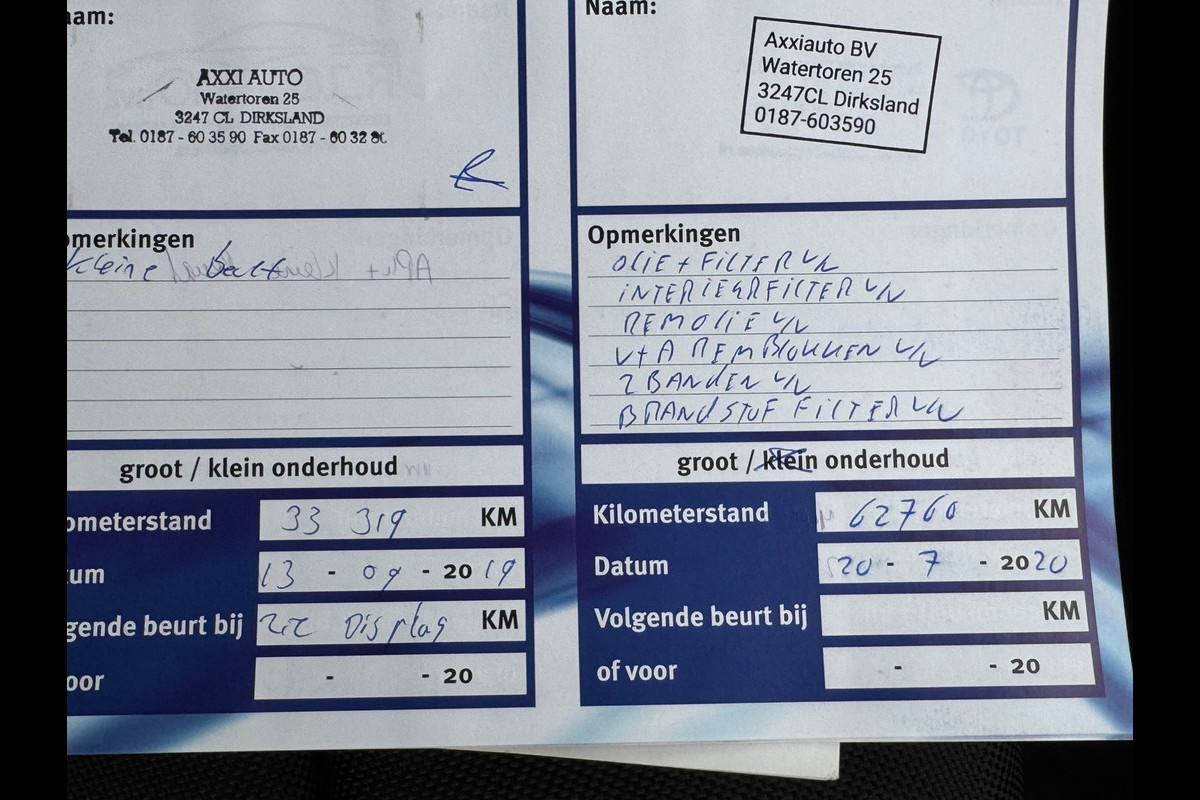 aam:
AXXI AUTO
Watertoren 25
3247 CL DIRKSLAND
Tel. 0187 - 60 35 90 Fax 0187 - 60 32 8
pmerkingen
kleine beurt
groot / klein onderhoud
ometerstand 33 319 KM
um 13 - 09 - 20 19
gende beurt bij zie Display KM
oor - - 20
Naam:
Axxiauto BV
Watertoren 25
3247CL Dirksland
0187-603590
Opmerkingen
OLIE + FILTER V/V
INTERIEURFILTER V/V
REMOLIE V/V
V+A REMBLOKKEN V/V
2 BANDEN V/V
BRANDSTOF FILTER V/V
groot / klein onderhoud
Kilometerstand 62760 KM
Datum 20 - 7 - 20 20
Volgende beurt bij KM
of voor - - 20